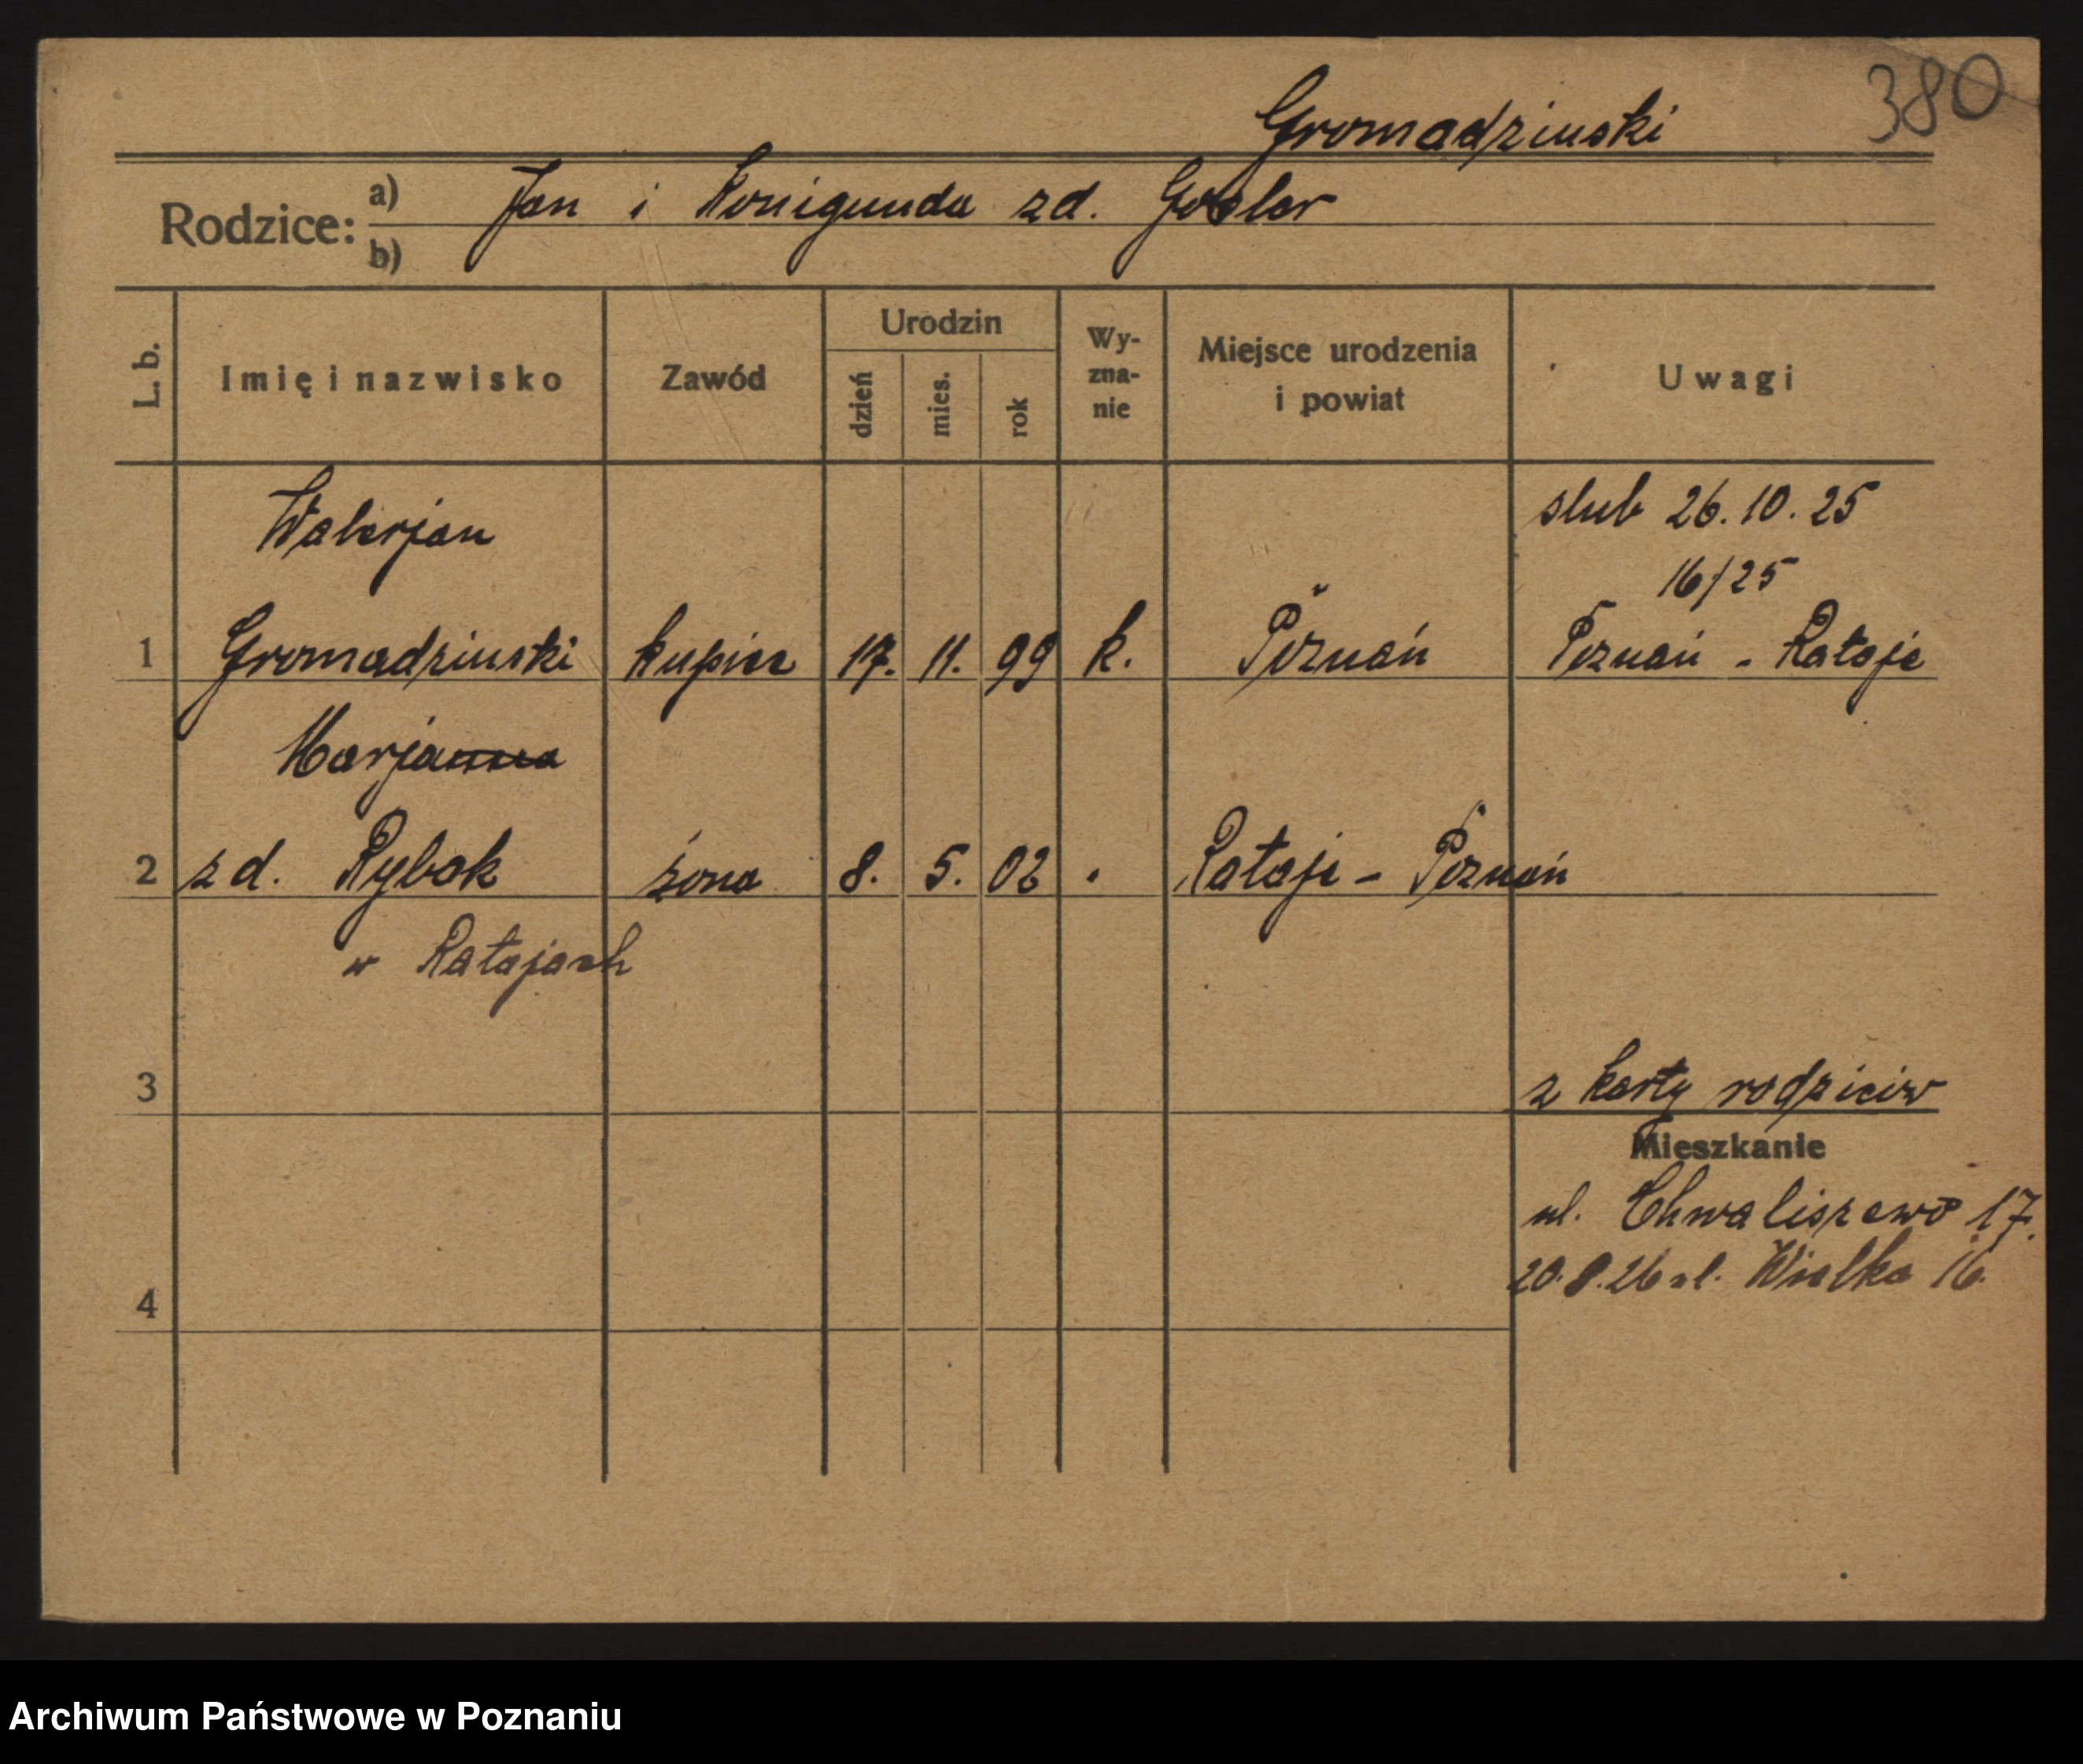 380
Gromadzinski
Rodzice: a) Jan i Konigunda zd. Goslar
b)
L. b. Imię i nazwisko Zawód Urodzin dzień mies. rok Wy-zna-nie Miejsce urodzenia i powiat Uwagi
Walerjan slub 26.10.25
16/25
1 Gromadzinski kupiec 17. 11. 99 k. Poznań Poznań - Rataje
Marjanna
2 zd. Rybak żona 8. 5. 02 " Rataje - Poznań
w Ratajach
3 z karty rodziców
Mieszkanie
ul. Chwaliszewo 17.
4 20.8.26 ul. Wielka 16.
Archiwum Państwowe w Poznaniu